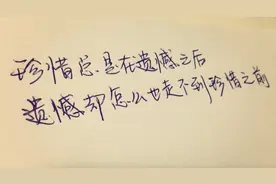 珍惜总是在遗憾之后
遗憾却怎么也走不到珍惜之前